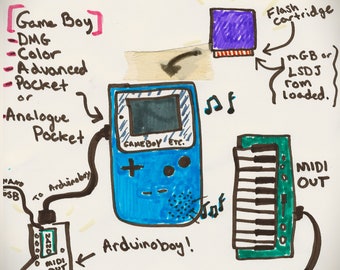 [Game Boy]
- DMG
- Color
- Advanced
- Pocket
or
Analogue
Pocket
Flash
cartridge
mGB or
LSDJ
rom
loaded.
GAMEBOY ETC.
MIDI
OUT
To Arduinoboy
USB
MIDI
OUT
Arduinoboy!